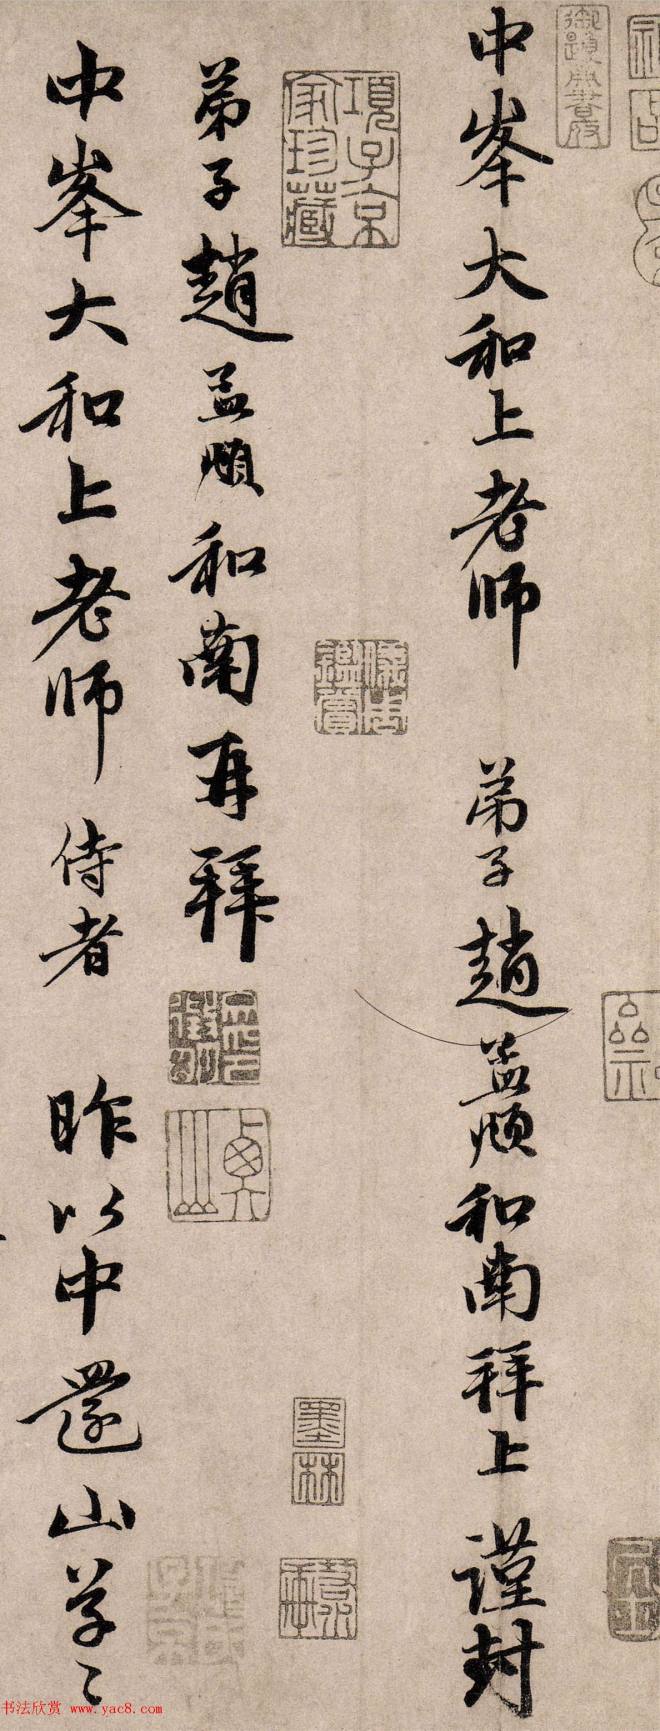 中峯大和上老师 弟子趙孟頫和南拜上 謹封
弟子趙孟頫和南再拜
中峯大和上老师 侍者 昨以中還山草〻
項子京家珍藏
墨林
书法欣赏 www.yac8.com